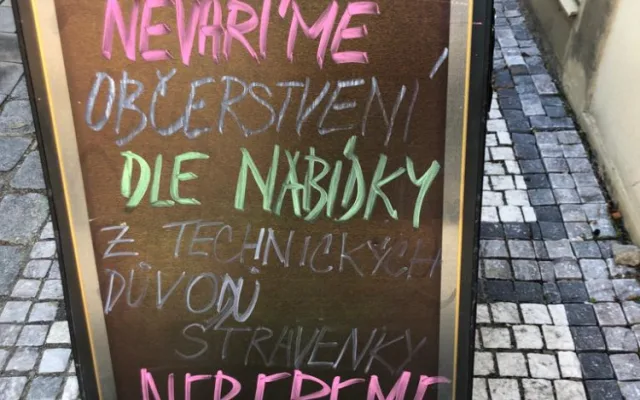 NEVAŘÍME
OBČERSTVENÍ
DLE NABÍDKY
Z TECHNICKÝCH
DŮVODŮ
STRAVENKY
NEBEREME